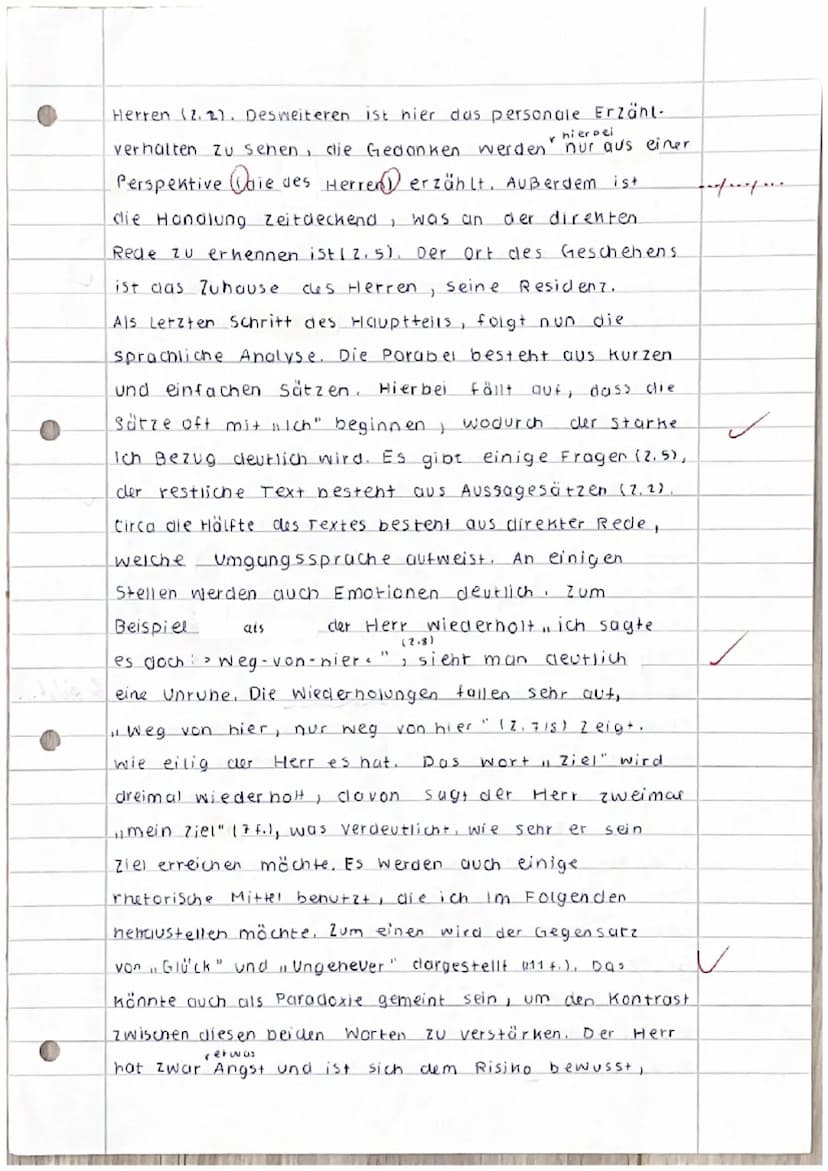 Herren (Z.2). Desweiteren ist hier das personale Erzähl-
verhalten zu sehen, die Gedanken werden hierbei nur aus einer
Perspektive (die des Herren) erzählt. Außerdem ist
die Handlung zeitdeckend, was an der direkten
Rede zu erkennen ist (Z.5). Der Ort des Geschehens
ist das Zuhause des Herren, seine Residenz.
Als Letzten Schritt des Hauptteils, folgt nun die
sprachliche Analyse. Die Parabel besteht aus kurzen
und einfachen Sätzen. Hierbei fällt auf, dass die
Sätze oft mit „Ich" beginnen, wodurch der starke
Ich Bezug deutlich wird. Es gibt einige Fragen (Z.5),
der restliche Text besteht aus Aussagesätzen (Z.2).
Circa die Hälfte des Textes besteht aus direkter Rede,
welche Umgangssprache aufweist. An einigen
Stellen werden auch Emotionen deutlich. Zum
Beispiel als der Herr wiederholt „ich sagte
es doch: >Weg-von-hier<" (Z.8), sieht man deutlich
eine Unruhe. Die Wiederholungen fallen sehr auf,
„Weg von hier, nur weg von hier" (Z.7/8) zeigt.
wie eilig der Herr es hat. Das Wort „Ziel" wird
dreimal wiederholt, davon sagt der Herr zweimal
„mein Ziel" (7f.), was verdeutlicht, wie sehr er sein
Ziel erreichen möchte. Es werden auch einige
rhetorische Mittel benutzt, die ich im Folgenden
herausstellen möchte. Zum einen wird der Gegensatz
von „Glück" und „Ungeheuer" dargestellt (11f.). Das
könnte auch als Paradoxie gemeint sein, um den Kontrast
zwischen diesen beiden Worten zu verstärken. Der Herr
hat zwar etwas Angst und ist sich dem Risiko bewusst,